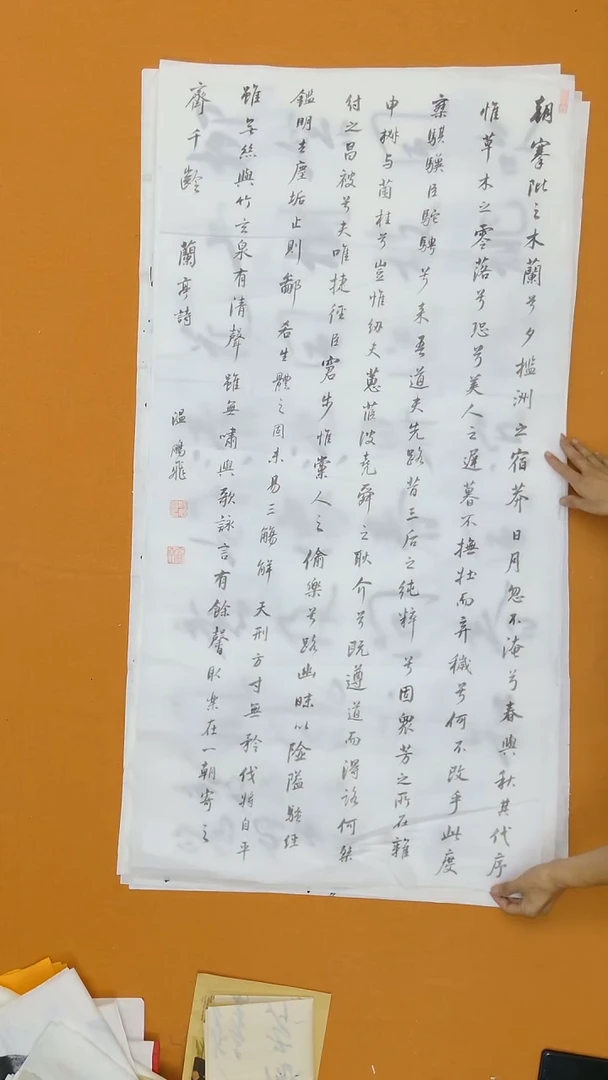 朝搴阰之木蘭兮夕洲之宿莽日月忽不淹兮春與秋其代序
惟草木之零落兮恐兮美人之遲暮不撫壯而弃穢兮何不改乎此度
椉騏驥㠯駝騁兮来吾道夫先路昔三后之純粹兮固衆芳之所在雜
申椒与菌桂兮豈惟纫夫蕙茝彼堯舜之耿介兮既遵道而得路何桀
紂之昌被兮夫唯捷徑㠯窘步惟黨人之偷樂兮路幽昧以險隘
鑑明去塵垢止則鄙吝生體之固未易三觴解天刑方寸無矜伐將自平
雖無絲與竹玄泉有清聲雖無嘯與歌詠言有餘馨取樂在一朝寄之
齊千齡 蘭亭詩
温鵬飛